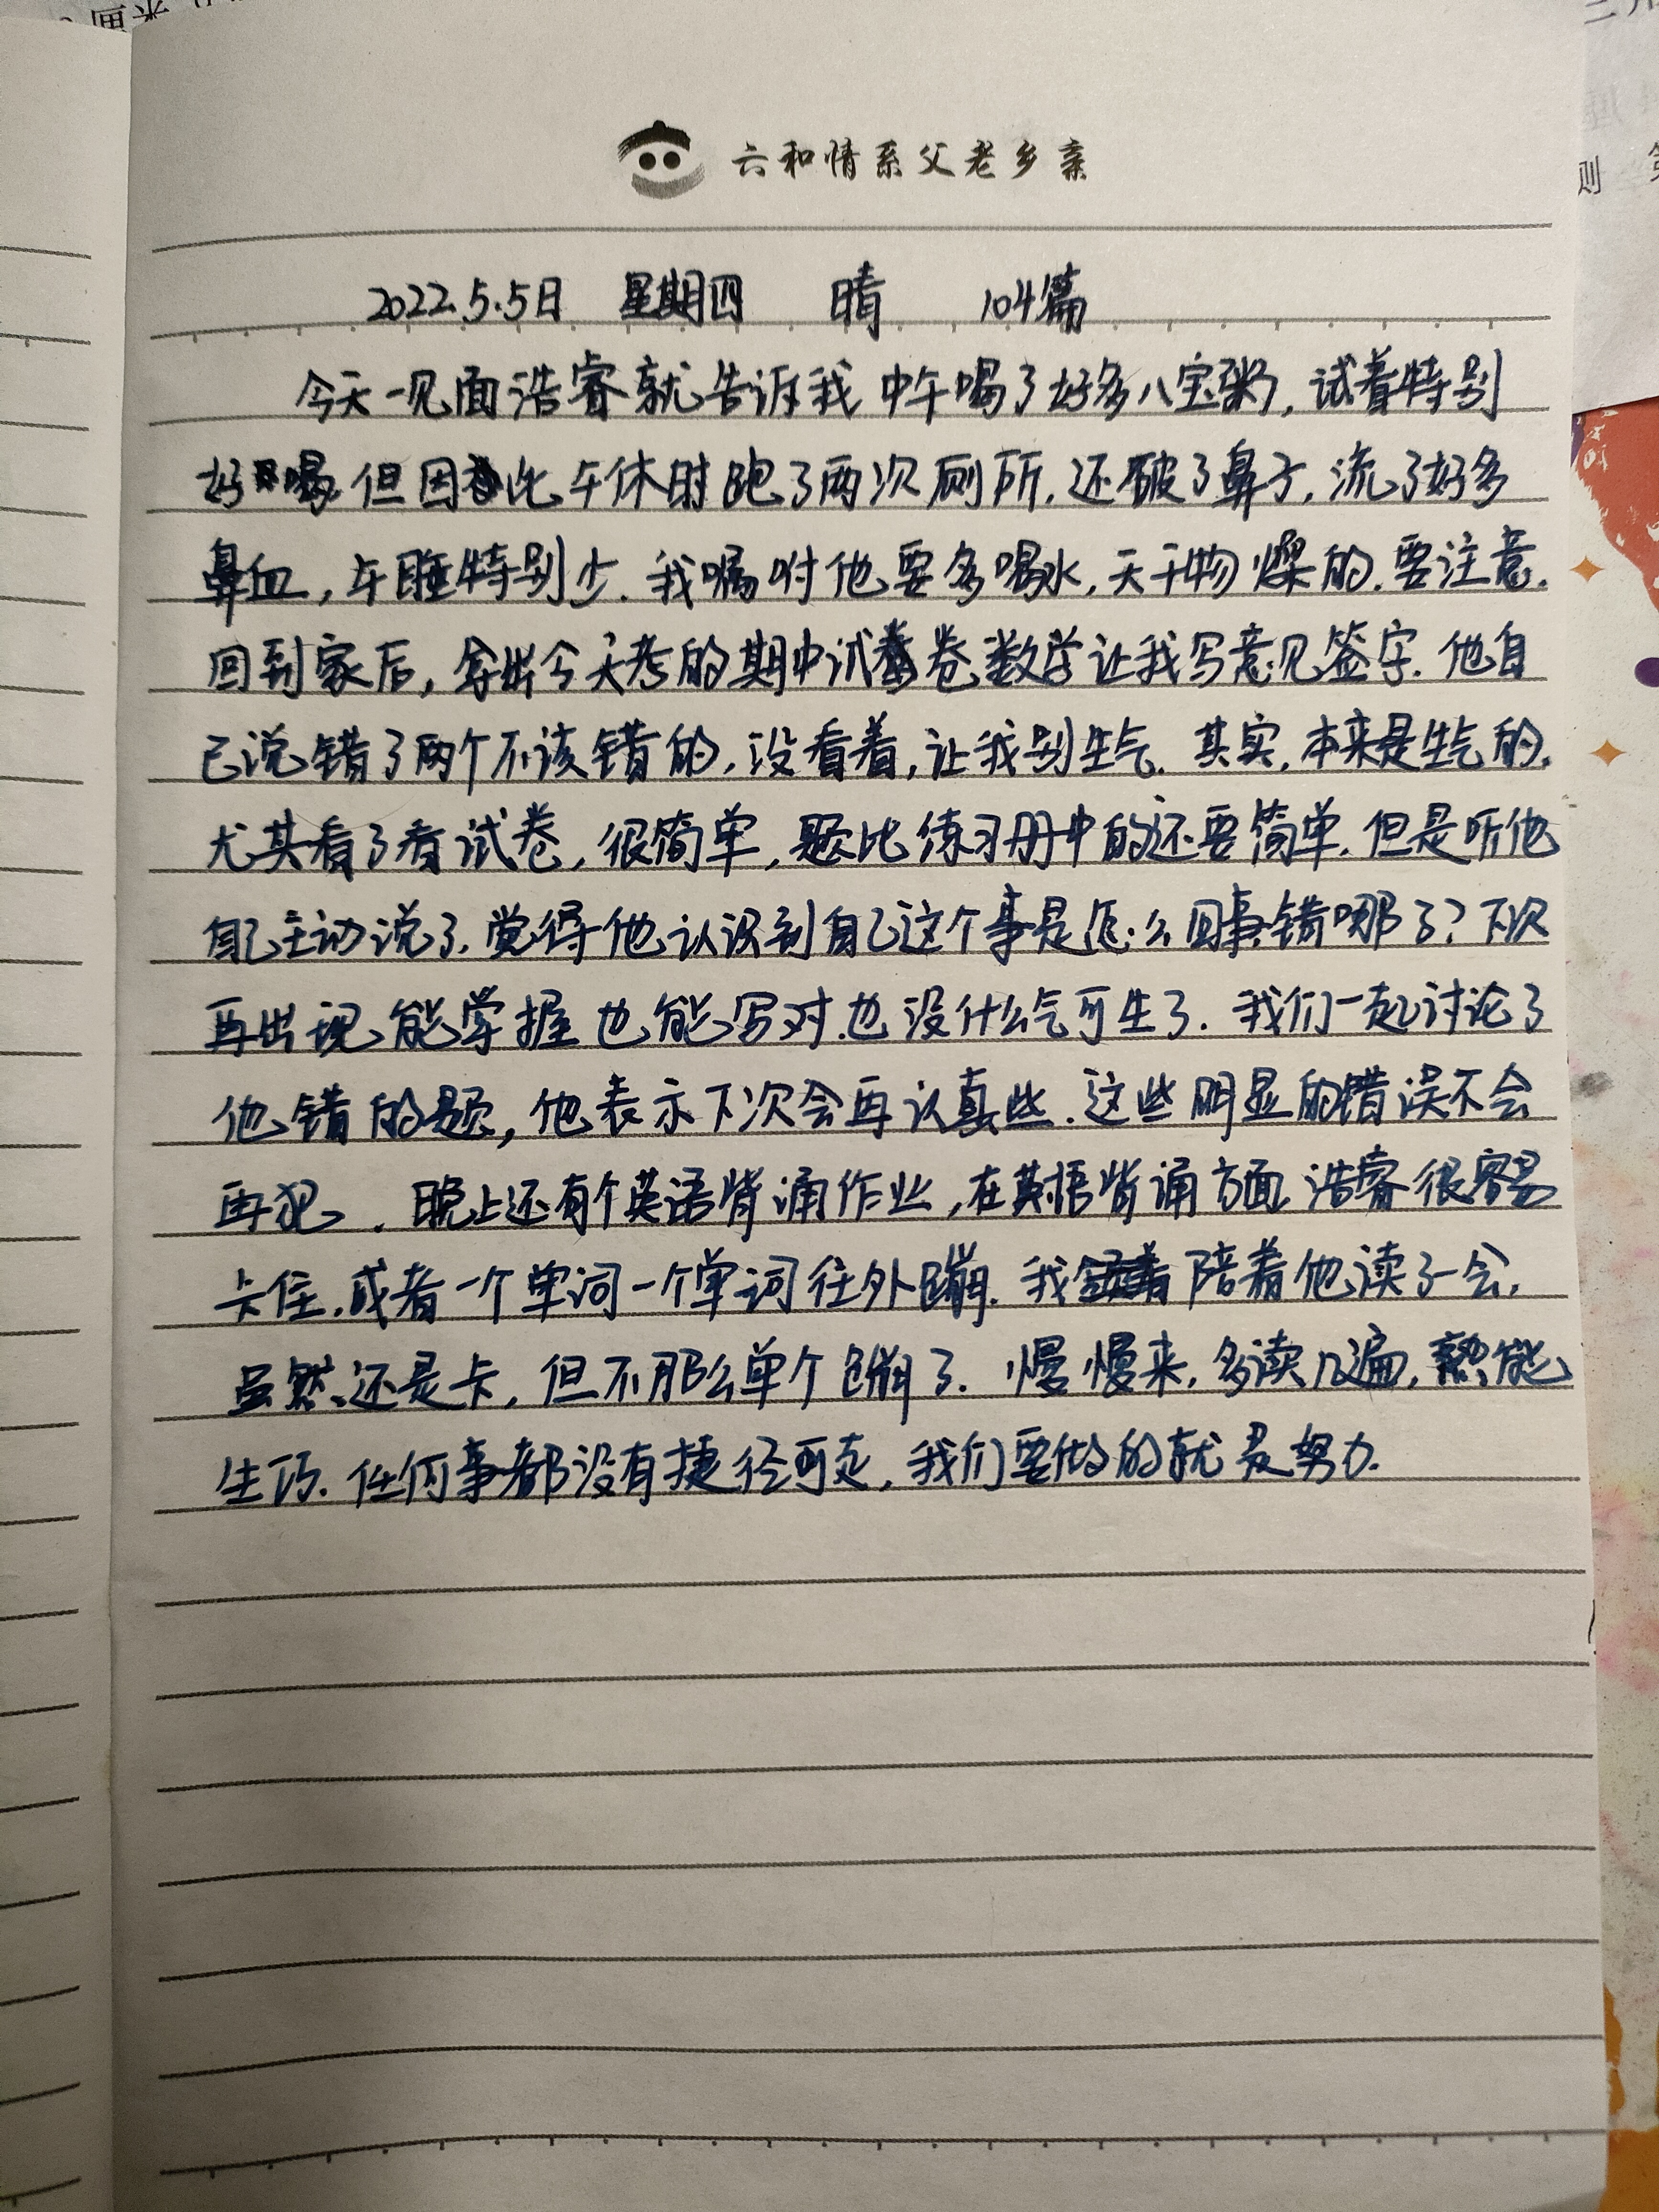 六和情系父老乡亲
2022.5.5日 星期四 晴 104篇
今天一见面浩睿就告诉我中午喝了好多八宝粥,试着特别
好喝.但因此午休时跑了两次厕所.还破了鼻子,流了好多
鼻血,午睡特别少.我嘱咐他要多喝水,天干物燥的.要注意.
回到家后,拿出今天考的期中试卷数学让我写意见签字.他自
己说错了两个不该错的,没看着,让我别生气.其实,本来是生气的.
尤其看了看试卷,很简单,题比练习册中的还要简单.但是听他
自己主动说了.觉得他认识到自己这个事是怎么回事,错哪了?下次
再出现能掌握也能写对.也没什么气可生了.我们一起讨论了
他错的题,他表示下次会再认真些.这些明显的错误不会
再犯.晚上还有个英语背诵作业,在英语背诵方面浩睿很容易
卡住.或者一个单词一个单词往外蹦.我陪着他读了一会,
虽然还是卡,但不那么单个蹦了.慢慢来,多读几遍,熟能
生巧.任何事都没有捷径可走,我们要做的就是努力.
则